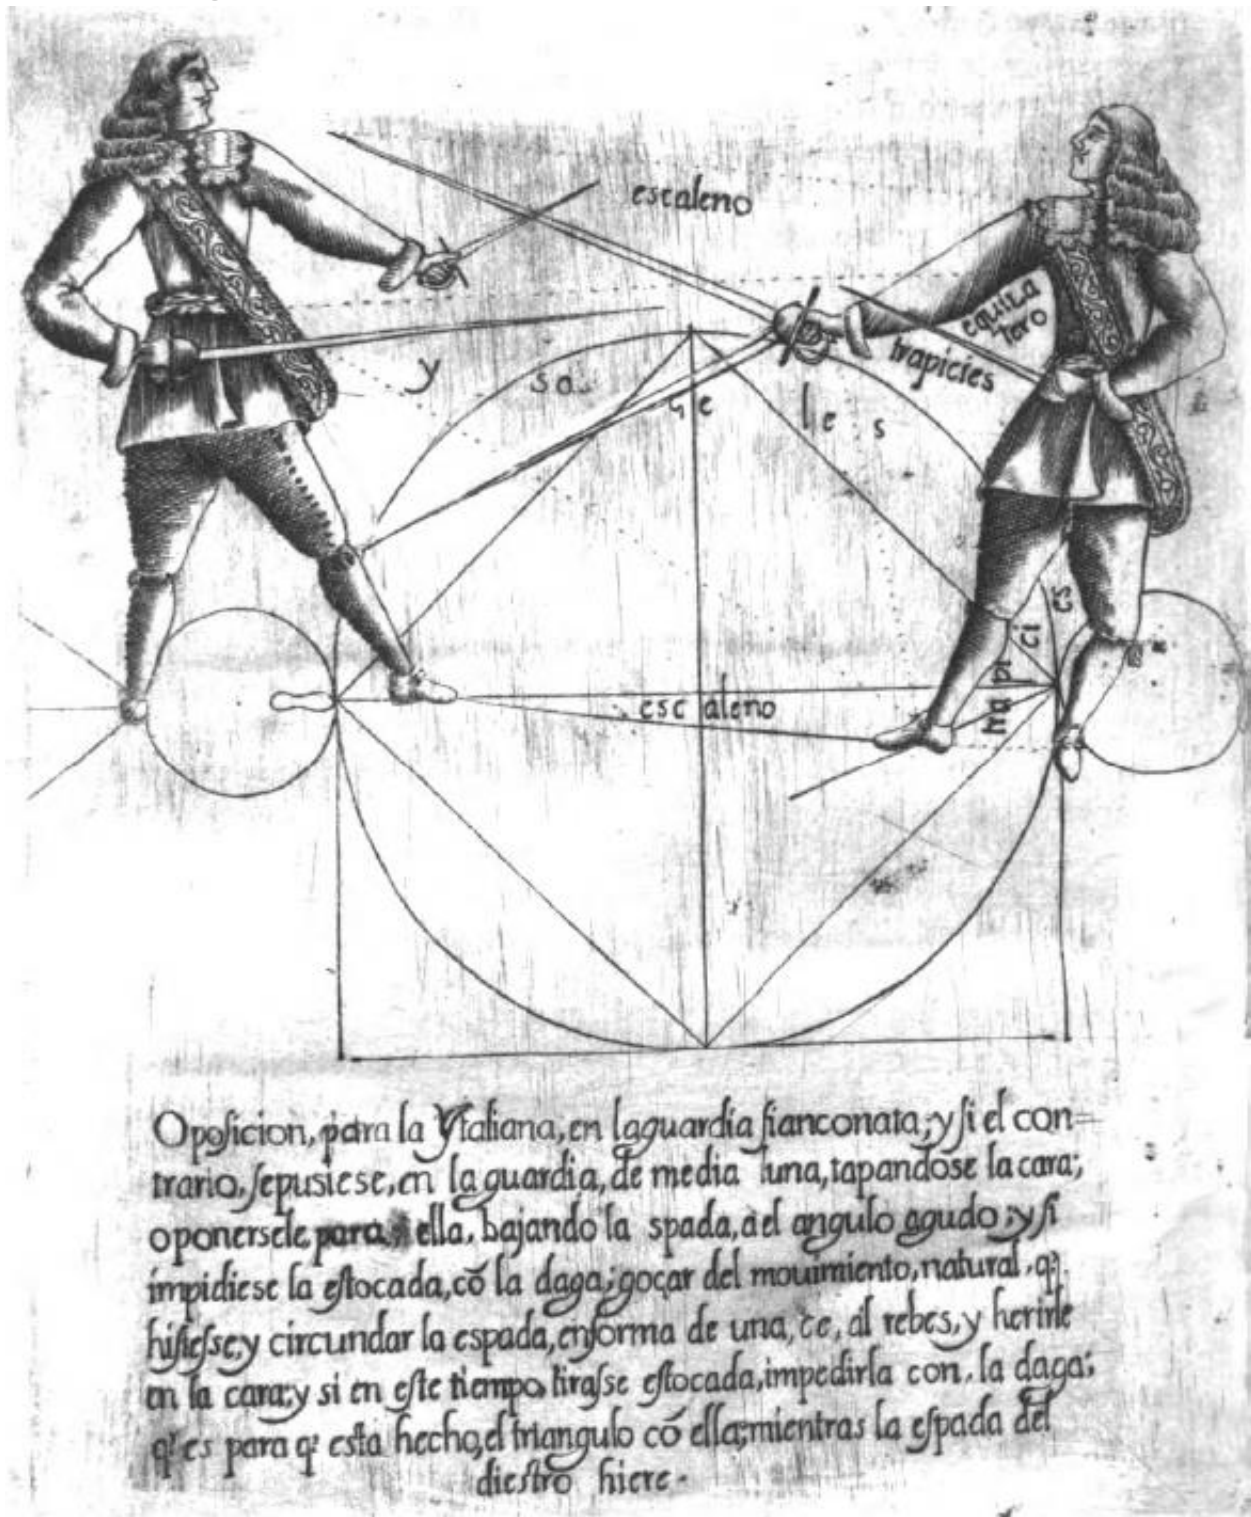 escaleno
equila
tero
trapicies
y
so
ge
les
escaleno
trapi ci es
Oposicion, para la Ytaliana, en la guardia fianconata; y si el con=
trario, sepusiese, en la guardia, de media luna, tapandose la cara;
oponersele para ella, bajando la spada, a el angulo agudo; y si
impidiese la estocada, cõ la daga; goçar del mouimiento, natural, q.
hisiesse, y circundar la espada, en forma de una, ce, al rebes, y herirle
en la cara; y si en este tiempo, tirasse estocada, impedirla con, la daga;
q.e es para q.e esta hecho, el triangulo cõ ella; mientras la espada del
diestro hiere.